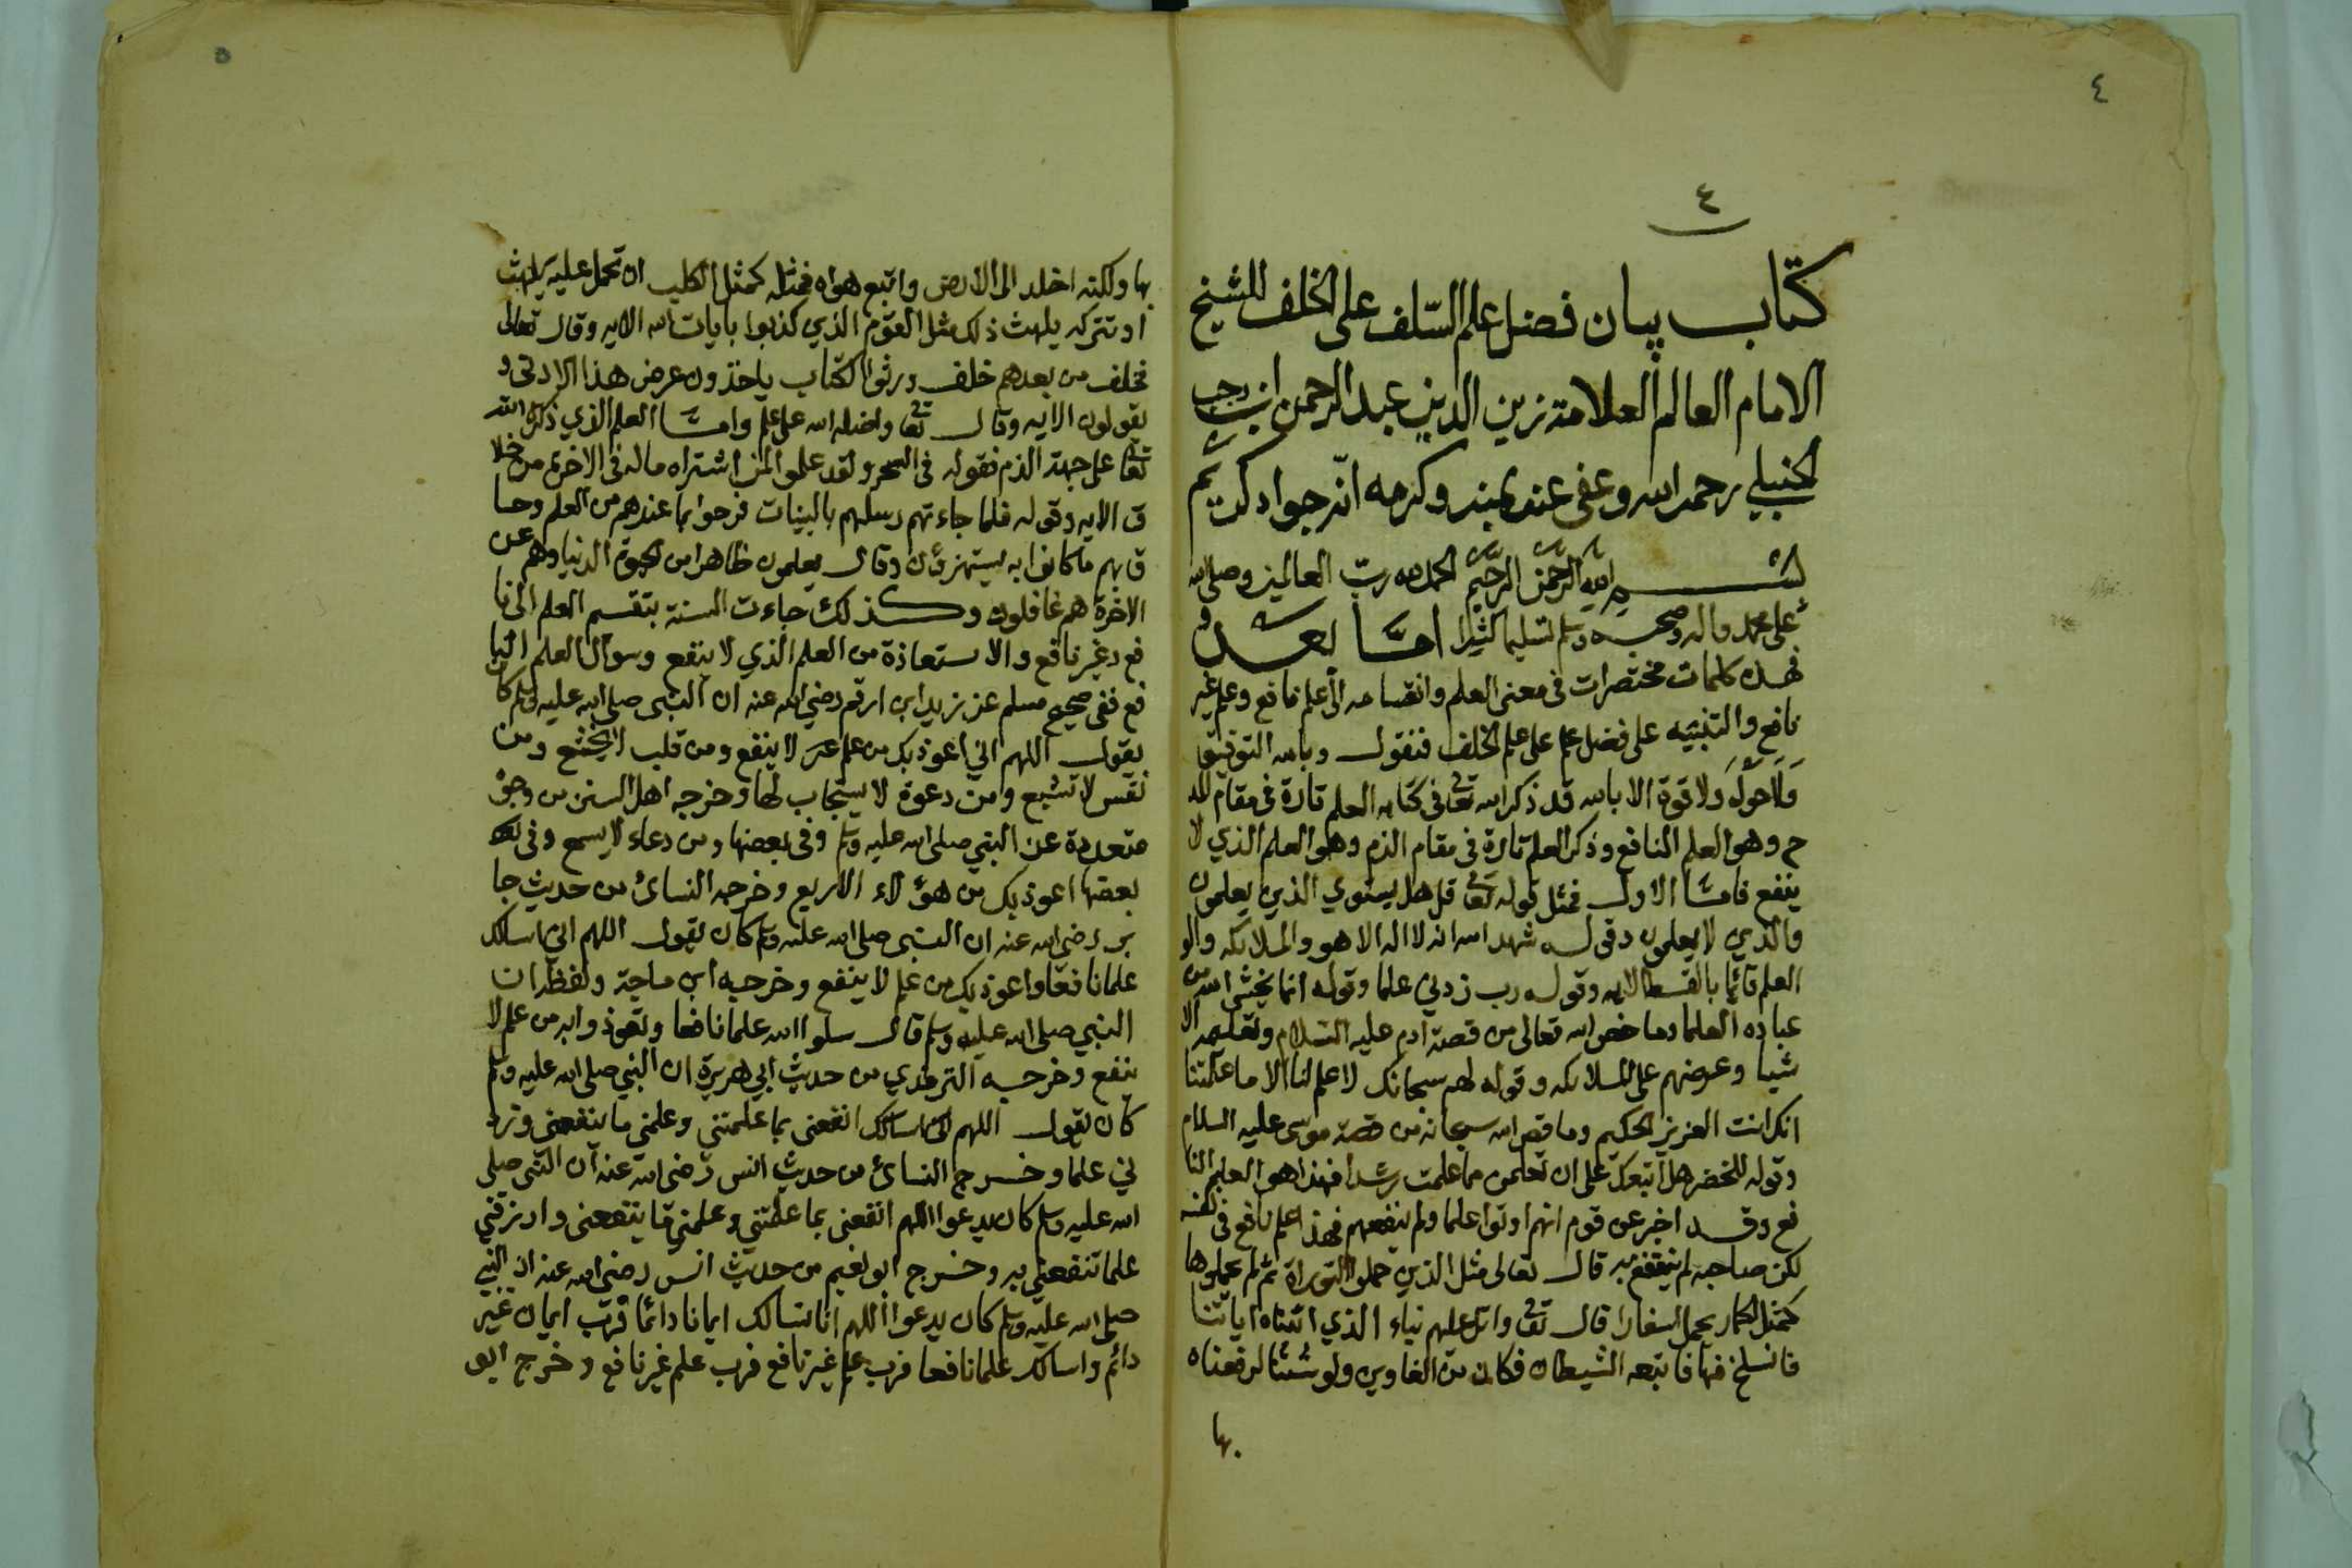 ٤
٤
كتاب بيان فضل علم السّلف على الخلف للشيخ
الامام العالم العلامة زين الدين عبد الرحمن ابن رجب
الحنبلي رحمه الله وعفى عنه بمنه وكرمه انّه جواد كريم
بسم الله الرحمن الرحيم الحمد لله ربّ العالمين وصلى الله
على محمد واله وصحبه وسلم تسليما كثيرا امّا بعد و
فهذه كلمات مختصرات في معنى العلم وانقسامه الى علم نافع وعلم غير
نافع والتنبيه على فضل علم على علم الخلف فنقول وبالله التوفيق
وَلَاحَوْلَ ولا قوة الا بالله قد ذكر الله تعا في كتابه العلم تارة في مقام المد
ح وهو العلم النافع وذكر العلم تارة في مقام الذم وهو العلم الذي لا
ينفع فامّا الاول فمثل قوله تعا قل هل يستوي الذين يعلمون
والذي لا يعلمون وقوله شهد الله انه لا اله الا هو والملائكه والو
العلم قائما بالقسط الايه وقوله رب زدني علما وقوله انما يخشى الله من
عباده العلما وما خص الله تعالى من قصة ادم عليه السلام وتعليمه الا
شيا وعرضهم على الملائكه وقوله لهم سبحانك لا علم لنا الا ما علمتنا
انك انت العزيز الحكيم وما قص الله سبحانه من قصة موسى عليه السلام
وقوله للخضر هل اتبعك على ان تعلمن مما علمت رشدا فهذا هو العلم النا
فع وقد اخبر عن قوم انهم اوتوا علما ولم ينفعهم فهذا علم نافع في نفسه
لكن صاحبه لم ينتفع به قال تعالى مثل الذين حملوا التوراة ثم لم يحملوها
كمثل الحمار يحمل اسفارا قال تعا واتل عليهم نباء الذي اتيناه اياتنا
فانسلخ منها فاتبعه الشيطان فكان من الغاوين ولو شئنا لرفعناه
بها
٥
بها ولكنه اخلد الى الارض واتبع هواه فمثله كمثل الكلب ان تحمل عليه يلهث
او تتركه يلهث ذلك مثل القوم الذي كذبوا بايات الله الايه وقال تعالى
فخلف من بعدهم خلف ورثوا الكتاب ياخذون عرض هذا الادنى و
يقولون الايه وقال تعا واضله الله على علم وامّا العلم الذي ذكره الله
تعا على جهة الذم فقوله في السحر ولقد علموا لمن اشتراه ماله في الاخرة من خلا
ق الايه وقوله فلما جاءتهم رسلهم بالبينات فرحوا بما عندهم من العلم وحا
ق بهم ما كانوا به يستهزؤن وقال يعلمون ظاهرا من الحيوة الدنيا وهم عن
الاخرة هم غافلون وكذلك جاءت السنة بتقسيم العلم الى نا
فع وغير نافع والاستعاذة من العلم الذي لا ينفع وسوال العلم النا
فع ففي صحيح مسلم عن زيد ابن ارقم رضي الله عنه ان النبي صلى الله عليه وسلم كان
يقول اللهم اني اعوذ بك من علم لا ينفع ومن قلب لا يخشع ومن
نفس لا تشبع ومن دعوة لا يستجاب لها وخرجه اهل السنن من وجوه
متعددة عن النبي صلى الله عليه وسلم وفي بعضها ومن دعاء لا يسمع وفي
بعضها اعوذ بك من هؤلاء الاربع وخرجه النسائ من حديث جا
بر رضي الله عنه ان النبي صلى الله عليه وسلم كان يقول اللهم اني اسالك
علما نافعا واعوذ بك من علم لا ينفع وخرجه ابن ماجة ولفظه ان
النبي صلى الله عليه وسلم قال سلوا الله علما نافعا وتعوذوا به من علم لا
ينفع وخرجه الترمذي من حديث ابي هريرة ان النبي صلى الله عليه وسلم
كان يقول اللهم انفعني بما علمتني وعلمني ما ينفعني وزد
ني علما وخرج النسائ من حديث انس رضي الله عنه ان النبي صلى
الله عليه وسلم كان يدعوا اللهم انفعني بما علمتني وعلمني ما ينفعني وارزقني
علما تنفعني به وخرج ابو نعيم من حديث انس رضي الله عنه ان النبي
صلى الله عليه وسلم كان يدعوا اللهم انا نسالك ايمانا دائما فرب ايمان غير
دائم واسالك علما نافعا فرب علم غير نافع فرب علم غير نافع وخرج ابو